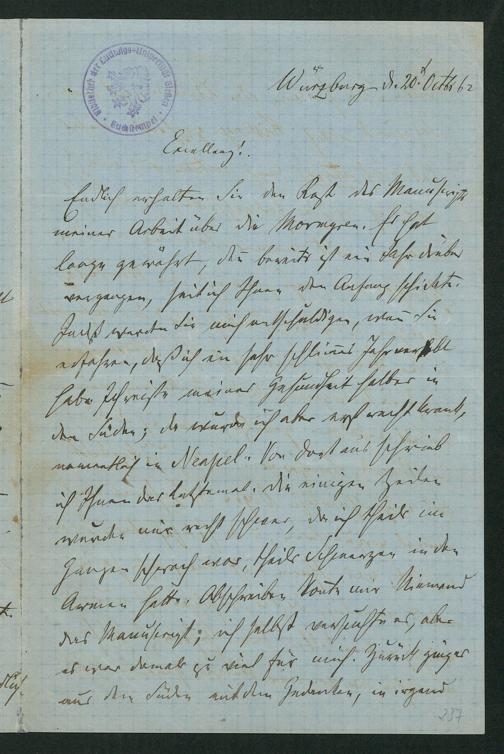 Bibliothek der Ludwigs-Universität Gießen
Würzburg d. 20t Octbr 62
Excellenz!
Endlich erhalten Sie den Rest des Manuscripts
meiner Arbeit über die Mormyren. Es hat
lange gewährt, denn bereits ist ein Jahr darüber
vergangen, seit ich Ihnen den Anfang schickte.
Indeß werden Sie mich entschuldigen, wenn Sie
erfahren, daß ich ein sehr schlimmes Jahr verlebt
habe. Ich reiste meiner Gesundheit halber in
den Süden; da wurde ich aber erst recht krank,
namentlich in Neapel. Von dort aus schrieb
ich Ihnen das letztemal. Die einigen Zeilen
wurden mir recht schwer, da ich theils im
Ganzen schwach war, theils Schmerzen in den
Armen hatte. Abschreiben konnte mir Niemand
das Manuscript; ich selbst versuchte es, aber
es war damals zu viel für mich. Zurück ging es
aus dem Süden mit dem Gedanken, in irgend
237